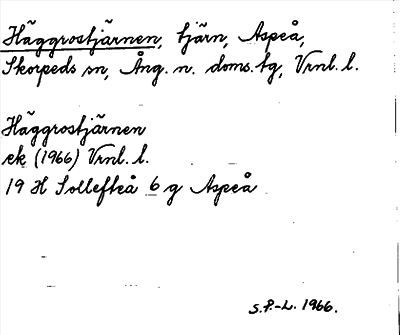 Häggrostjärnen, tjärn, Aspeå,
Skorpeds sn, Ång. n. doms. tg, Vrnl. l.
Häggrostjärnen
ek (1966) Vrnl. l.
19 H Sollefteå 6 g Aspeå
S.P.-L. 1966.